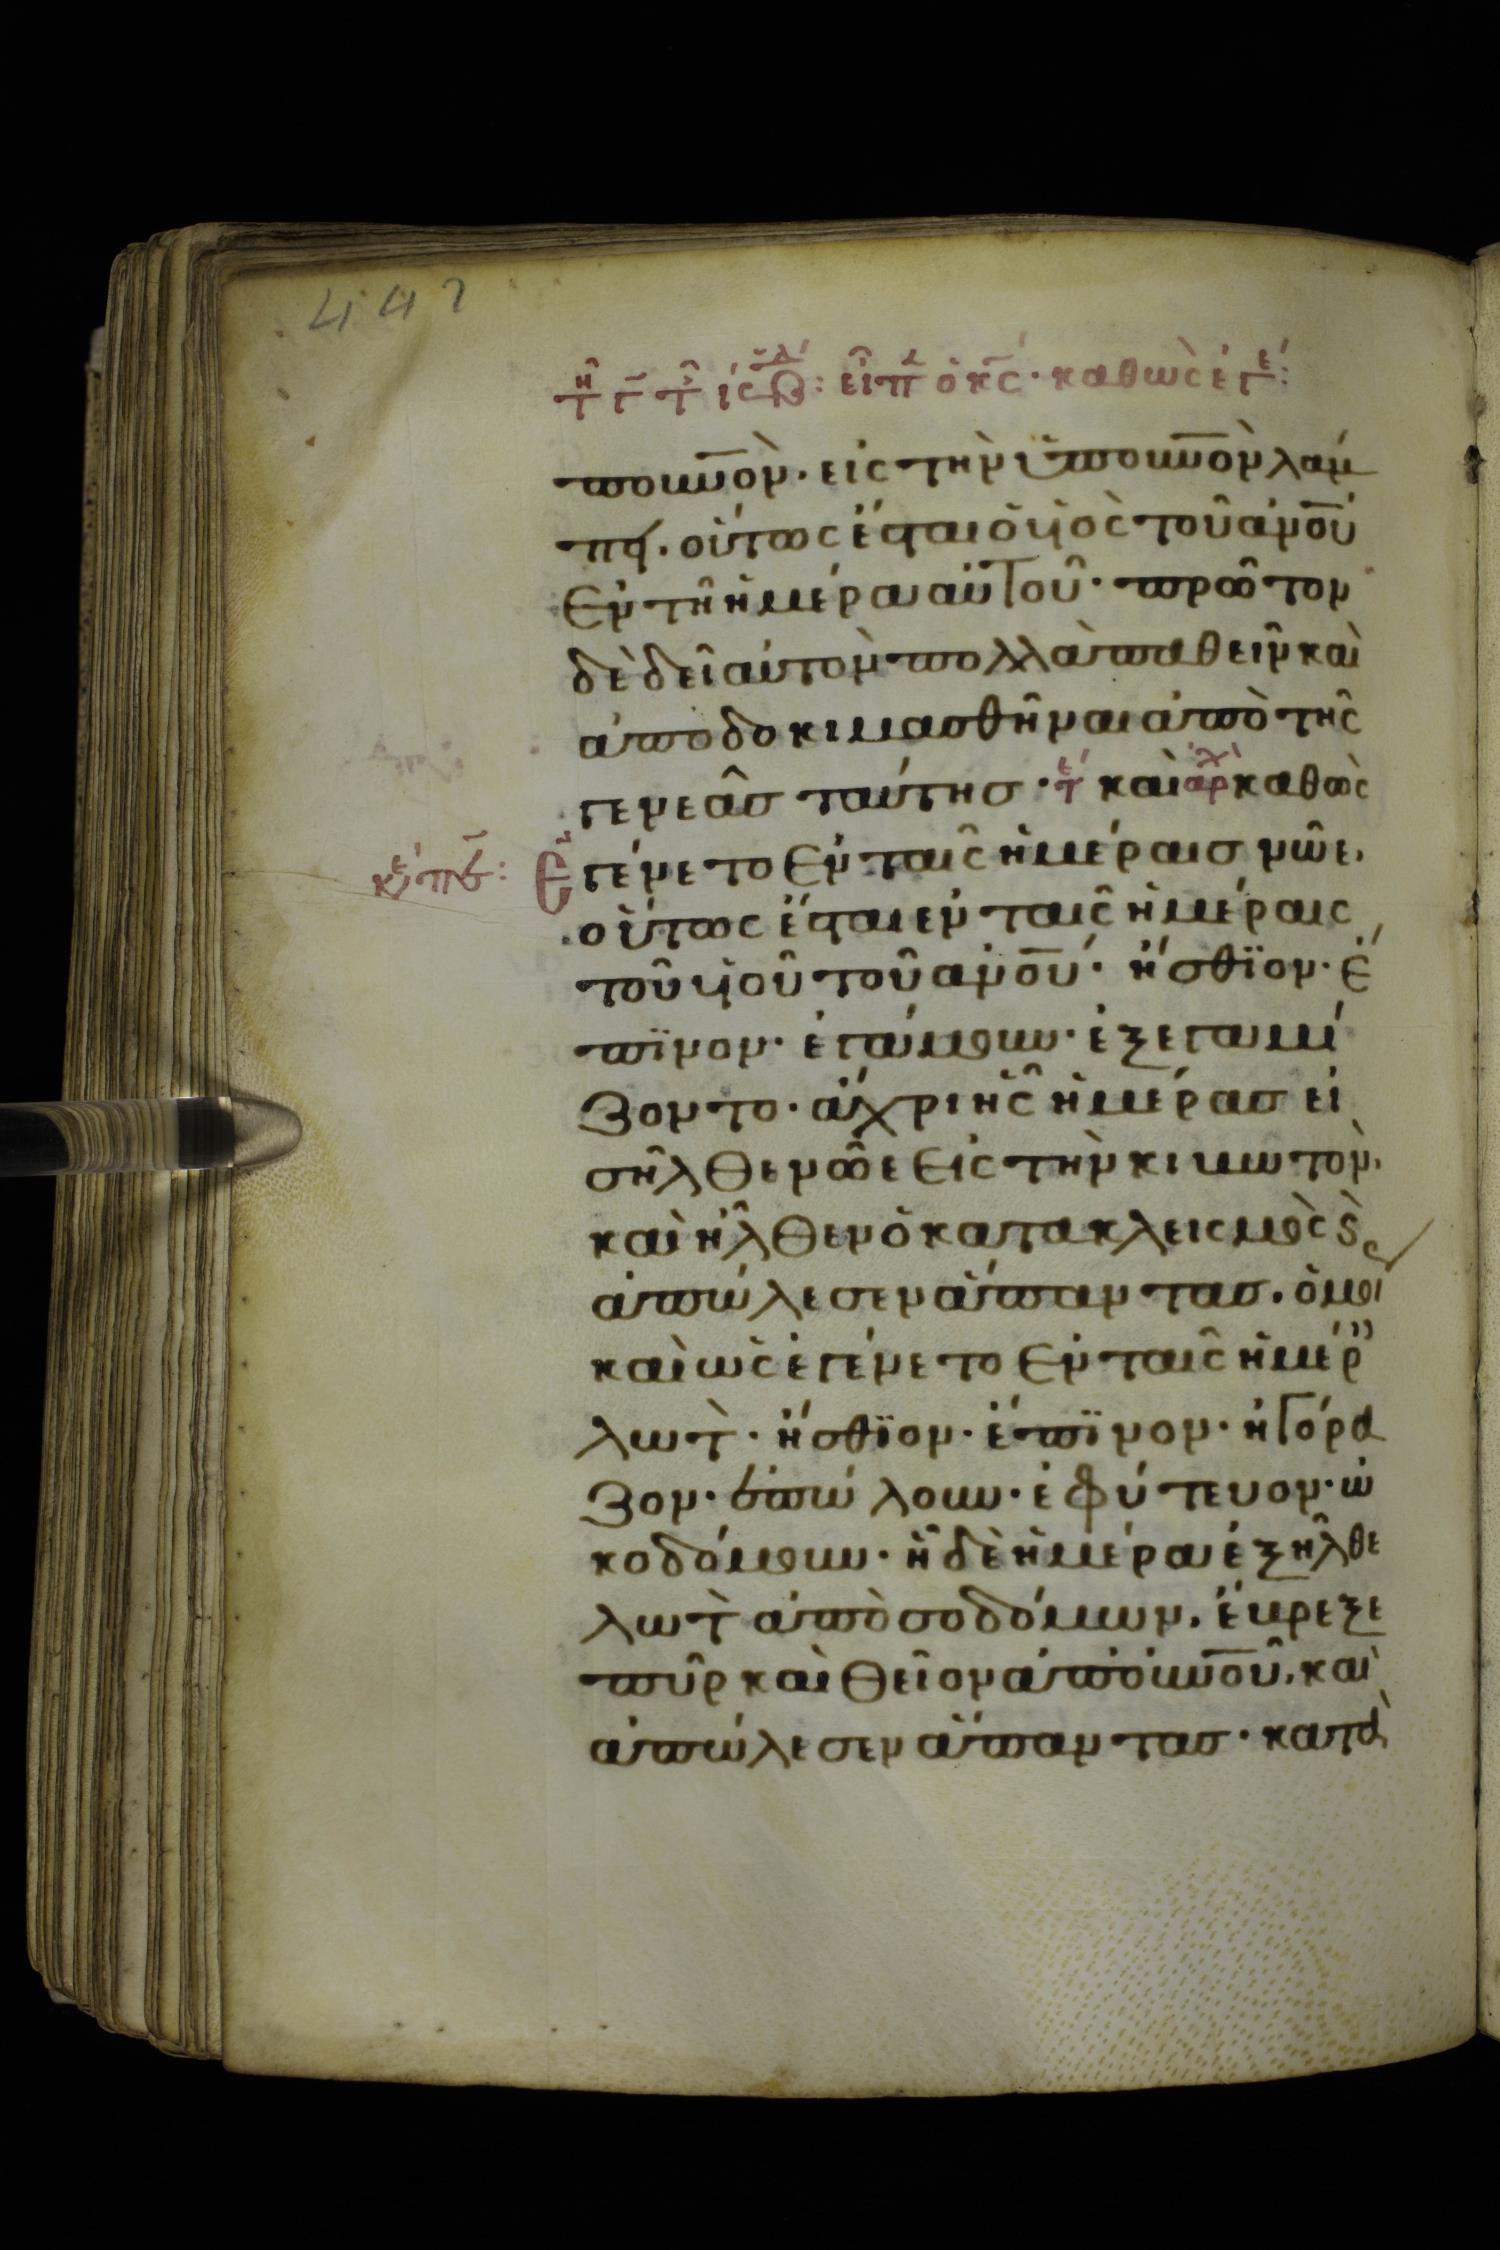 442
τῇ γ̄ τῆς ιϛ ἑβδ: εἶπ ὁ κ̅ς̅· καθὼς ἐγέ:
πὸ οὐ̅νο̅ν̅· εἰς τὴν ὑπ' οὐ̅νὸν λάμ
πει. οὕτως ἔσται ὁ υἱὸς τοῦ ἀν̅ου̅
Ἐν τῆ ἡμέραι αὐτοῦ· πρῶτον
δὲ δεῖ αὐτὸν πολλὰ παθεῖν καὶ
ἀποδοκιμασθῆναι ἀπὸ τῆς
γενεᾶσ ταύτησ· τέ καὶ ἀρχ καθὼς
κυ πε: Ἐγένετο Ἐν ταῖς ἡμέραισ νῶε,
οὕτως ἔσται ἐν ταῖς ἡμέραις
τοῦ υἱοῦ τοῦ ἀν̅ου̅· ἤσθϊον· ἔ
πϊνον· ἐγάμουν· ἐξεγαμί
ζοντο· ἄχρι ἧς ἡμέρασ εἰ
σῆλθε νῶε Εἰς τὴν κιβωτὸν,
καὶ ἦλθεν ὁ κατακλεισμὸς καὶ
ἀπώλεσεν ἅπαντασ. ὁμοί
καὶ ὡς ἐγένετο Ἐν ταῖς ἡμέρ
λώτ· ἤσθϊον· ἔπϊνον· ἠγόρα
ζον· ἐπώλουν· ἐφύτευον· ὠ
κοδόμουν· ἧ δὲ ἡμέραι ἐξῆλθε
λὼτ ἀπὸ σοδόμων. ἔβρεξε
πῦρ καὶ θεῖον ἀπ' οὐ̅νοῦ, καὶ
ἀπώλεσεν ἅπαντασ· κατὰ